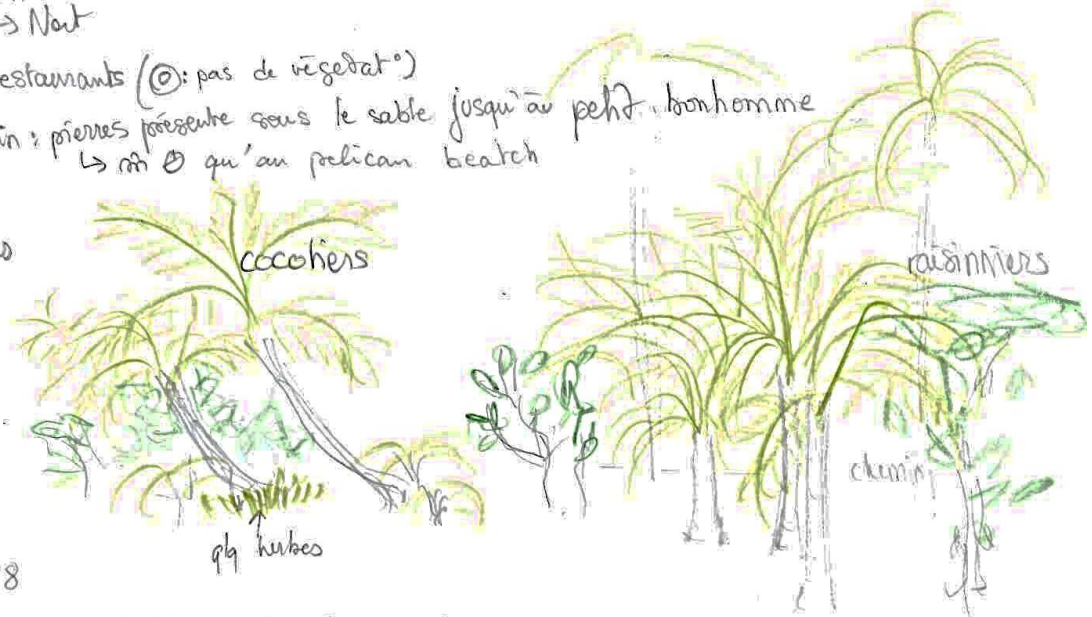 → Nort
estaurants (◎: pas de végétat°)
in : pierres présente sous le sable jusqu'au petit bonhomme
↳ qu'au pelican beatch
cocotiers
raisinniers
chemin
qlq herbes
8